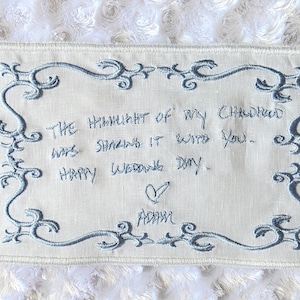 THE HIGHLIGHT OF MY CHILDHOOD
WAS SHARING IT WITH YOU.
HAPPY WEDDING DAY.
ADAM